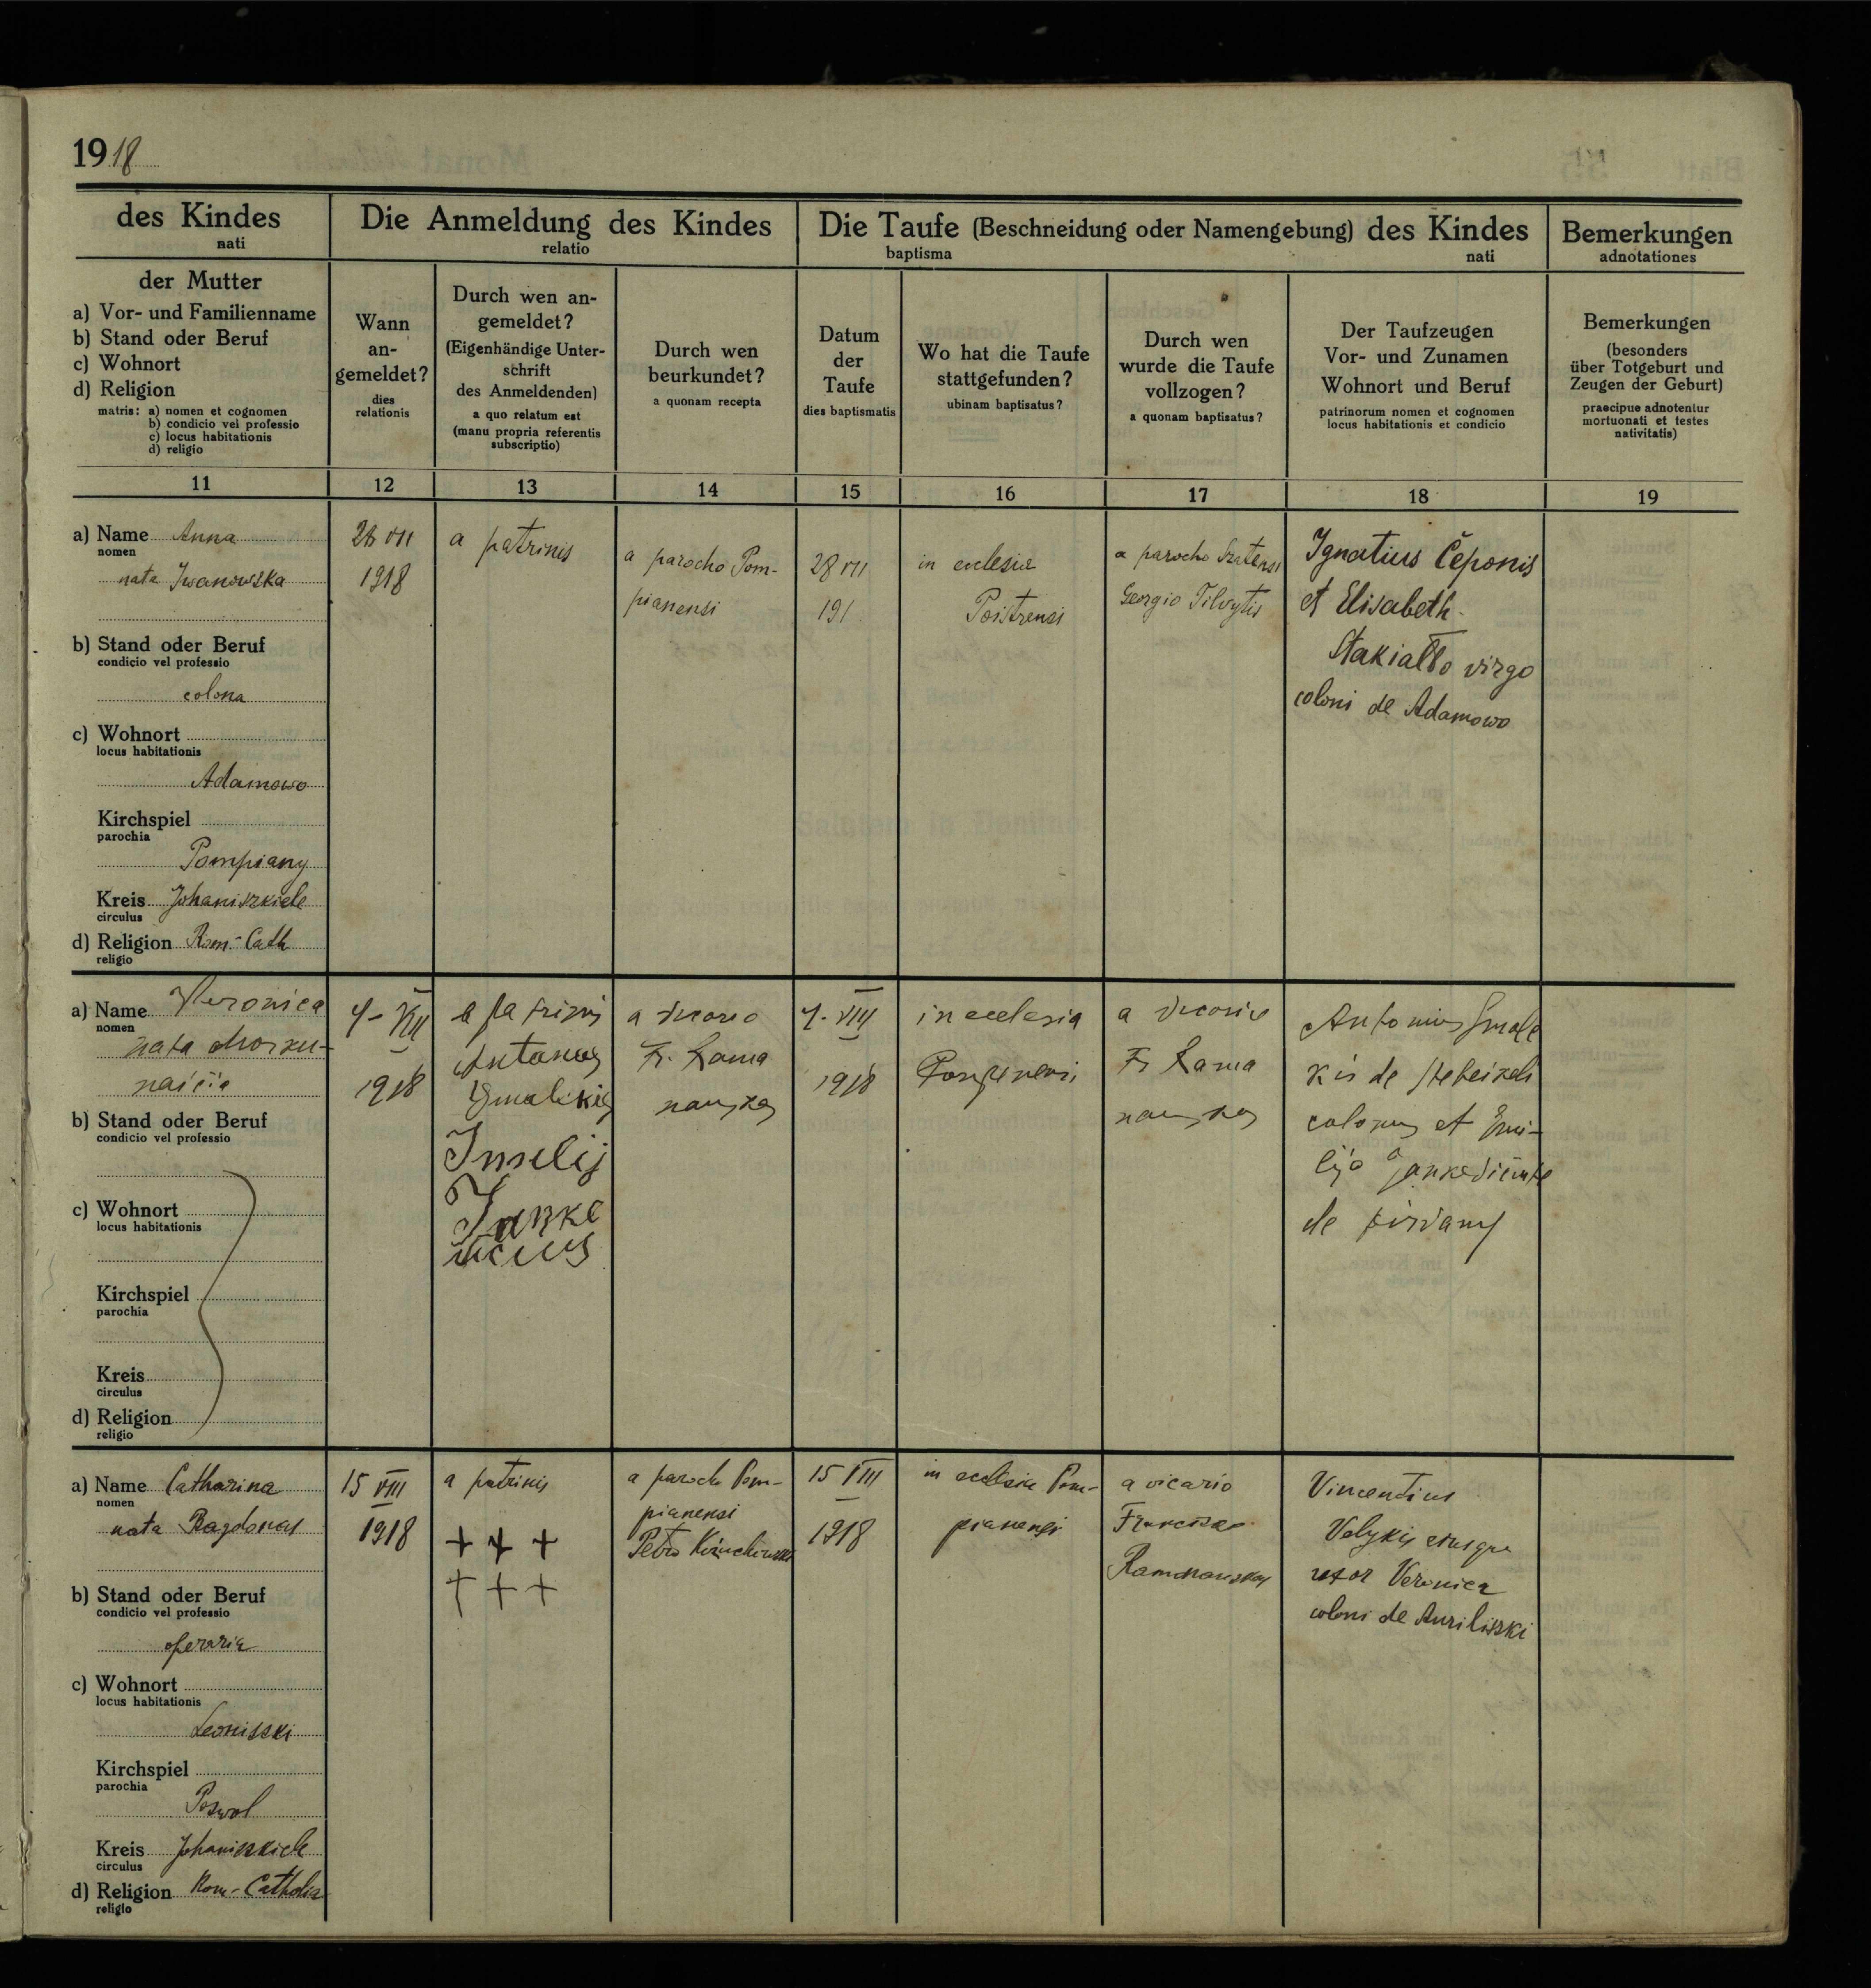 1918
des Kindes
nati
Die Anmeldung des Kindes
relatio
Die Taufe (Beschneidung oder Namengebung) des Kindes
baptisma nati
Bemerkungen
adnotationes
der Mutter
a) Vor- und Familienname
b) Stand oder Beruf
c) Wohnort
d) Religion
matris: a) nomen et cognomen
b) condicio vel professio
c) locus habitationis
d) religio
Wann
an-
gemeldet?
dies
relationis
Durch wen an-
gemeldet?
(Eigenhändige Unter-
schrift
des Anmeldenden)
a quo relatum est
(manu propria referentis
subscriptio)
Durch wen
beurkundet?
a quonam recepta
Datum
der
Taufe
dies baptismatis
Wo hat die Taufe
stattgefunden?
ubinam baptisatus?
Durch wen
wurde die Taufe
vollzogen?
a quonam baptisatus?
Der Taufzeugen
Vor- und Zunamen
Wohnort und Beruf
patrinorum nomen et cognomen
locus habitationis et condicio
Bemerkungen
(besonders
über Totgeburt und
Zeugen der Geburt)
praecipue adnotentur
mortuonati et testes
nativitatis)
11 12 13 14 15 16 17 18 19
a) Name Anna
nomen
nata Iwanowska
b) Stand oder Beruf
condicio vel professio
colona
c) Wohnort
locus habitationis
Adamowo
Kirchspiel
parochia
Pompiany
Kreis Johaniszkiele
circulus
d) Religion Rom-Cath
religio
28 VII
1918
a patrinis
a parocho Pom-
pianensi
28 VII
191
in eclesia
Poistrensi
a parocho
Georgio Tilvytis
Ignatius Čeponis
et Elisabeth
virgo
coloni de Adamowo
a) Name Veronica
nomen
nata
b) Stand oder Beruf
condicio vel professio
c) Wohnort
locus habitationis
Kirchspiel
parochia
Kreis
circulus
d) Religion
religio
1918
a patrinis
Antanas
a vicario
Fr. Rama
nauskas
VIII
1918
in ecclesia
a vicario
Fr Rama
nauskas
Antonius Smal
kis de
colonus et Emi-
lija
de
a) Name Catharina
nomen
nata Bagdonas
b) Stand oder Beruf
condicio vel professio
operaria
c) Wohnort
locus habitationis
Leoniszki
Kirchspiel
parochia
Poswol
Kreis Johaniszkiele
circulus
d) Religion Rom-Catholica
religio
15 VIII
1918
a patrinis
+ + +
+ + +
a parocho Pom-
pianensi
Petro
15 VIII
1918
in ecclesia Pom-
pianensi
a vicario
Francisco
Ramanauskas
Vincentius
Velykis eiusque
uxor Veronica
coloni de Auriliszki